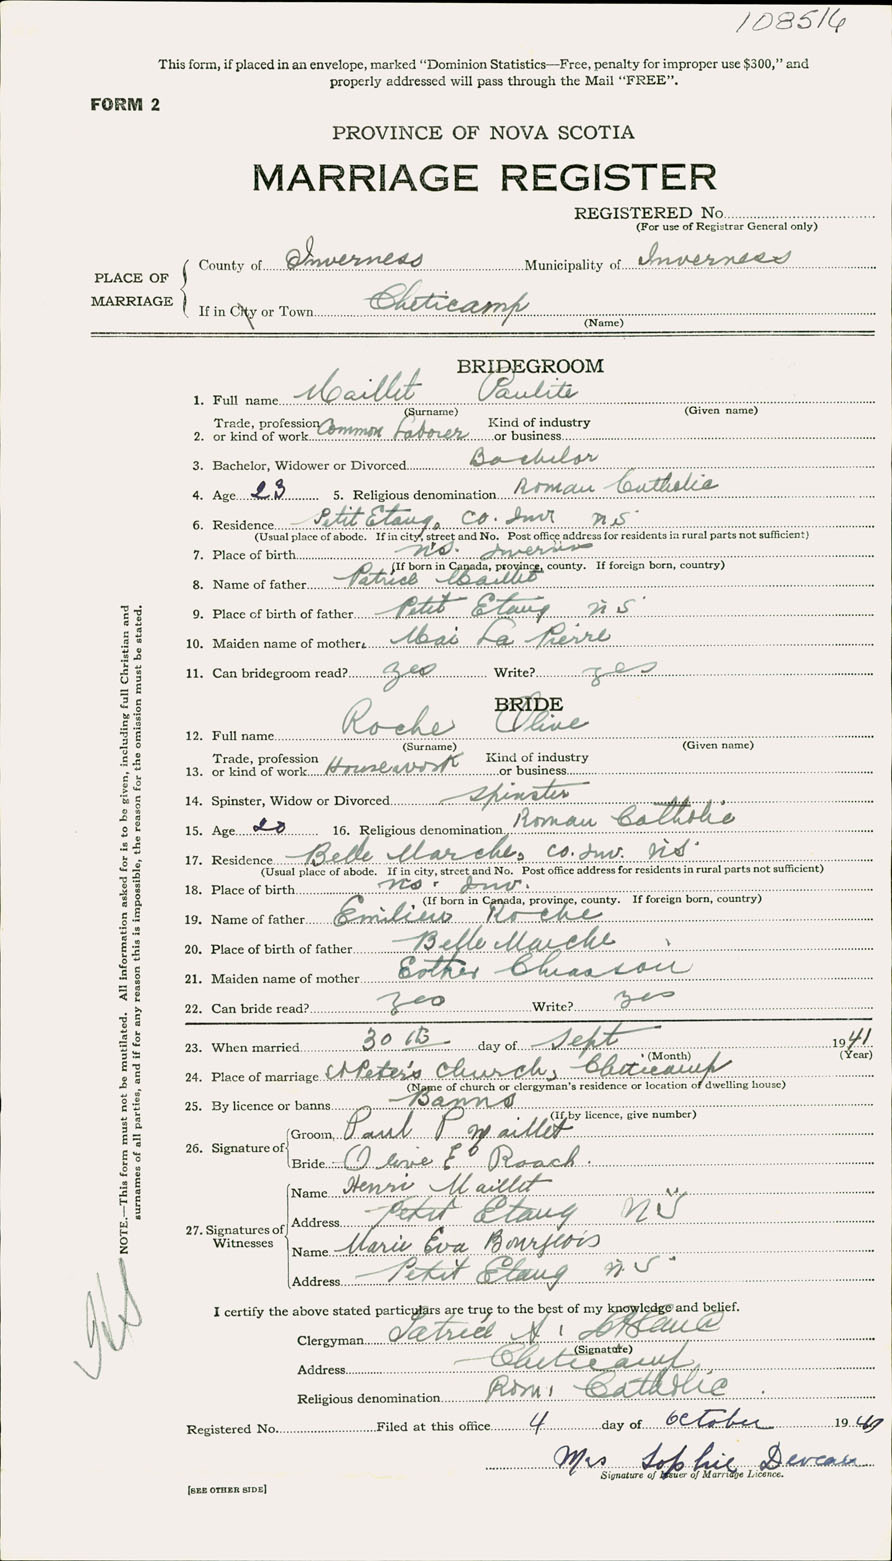 108516
This form, if placed in an envelope, marked "Dominion Statistics—Free, penalty for improper use $300," and
properly addressed will pass through the Mail "FREE".
FORM 2
PROVINCE OF NOVA SCOTIA
MARRIAGE REGISTER
REGISTERED No.
(For use of Registrar General only)
PLACE OF MARRIAGE
County of Inverness Municipality of Inverness
If in City or Town Cheticamp
(Name)
BRIDEGROOM
1. Full name Maillet Paulite
(Surname) (Given name)
2. Trade, profession or kind of work Common Laborer Kind of industry or business
3. Bachelor, Widower or Divorced Bachelor
4. Age 23 5. Religious denomination Roman Catholic
6. Residence Petit Etang, Co. Inv N S
(Usual place of abode. If in city, street and No. Post office address for residents in rural parts not sufficient)
7. Place of birth N.S. Inverness
(If born in Canada, province, county. If foreign born, country)
8. Name of father Patrice Maillet
9. Place of birth of father Petit Etang N S
10. Maiden name of mother Mai La Pierre
11. Can bridegroom read? yes Write? yes
BRIDE
12. Full name Roche Olive
(Surname) (Given name)
13. Trade, profession or kind of work Housework Kind of industry or business
14. Spinster, Widow or Divorced Spinster
15. Age 20 16. Religious denomination Roman Catholic
17. Residence Belle Marche, Co. Inv. N S
(Usual place of abode. If in city, street and No. Post office address for residents in rural parts not sufficient)
18. Place of birth N S. Inv.
(If born in Canada, province, county. If foreign born, country)
19. Name of father Emilien Roche
20. Place of birth of father Belle Marche
21. Maiden name of mother Esther Chiasson
22. Can bride read? yes Write? yes
23. When married 30 th day of Sept 1941
(Month) (Year)
24. Place of marriage St Peter's Church, Cheticamp
(Name of church or clergyman's residence or location of dwelling house)
25. By licence or banns Banns
(If by licence, give number)
26. Signature of
Groom Paul P Maillet
Bride Olive E Roach
27. Signatures of Witnesses
Name Henri Maillet
Address Petit Etang N S
Name Marie Eva Bourgeois
Address Petit Etang N S
I certify the above stated particulars are true to the best of my knowledge and belief.
Clergyman Patrice A.
(Signature)
Address Cheticamp
Religious denomination Rom. Catholic
Registered No. Filed at this office 4 day of October 19
Mrs Sophie
Signature of Issuer of Marriage Licence.
[SEE OTHER SIDE]
NOTE.—This form must not be mutilated. All information asked for is to be given, including full Christian and
surnames of all parties, and if for any reason this is impossible, the reason for the omission must be stated.